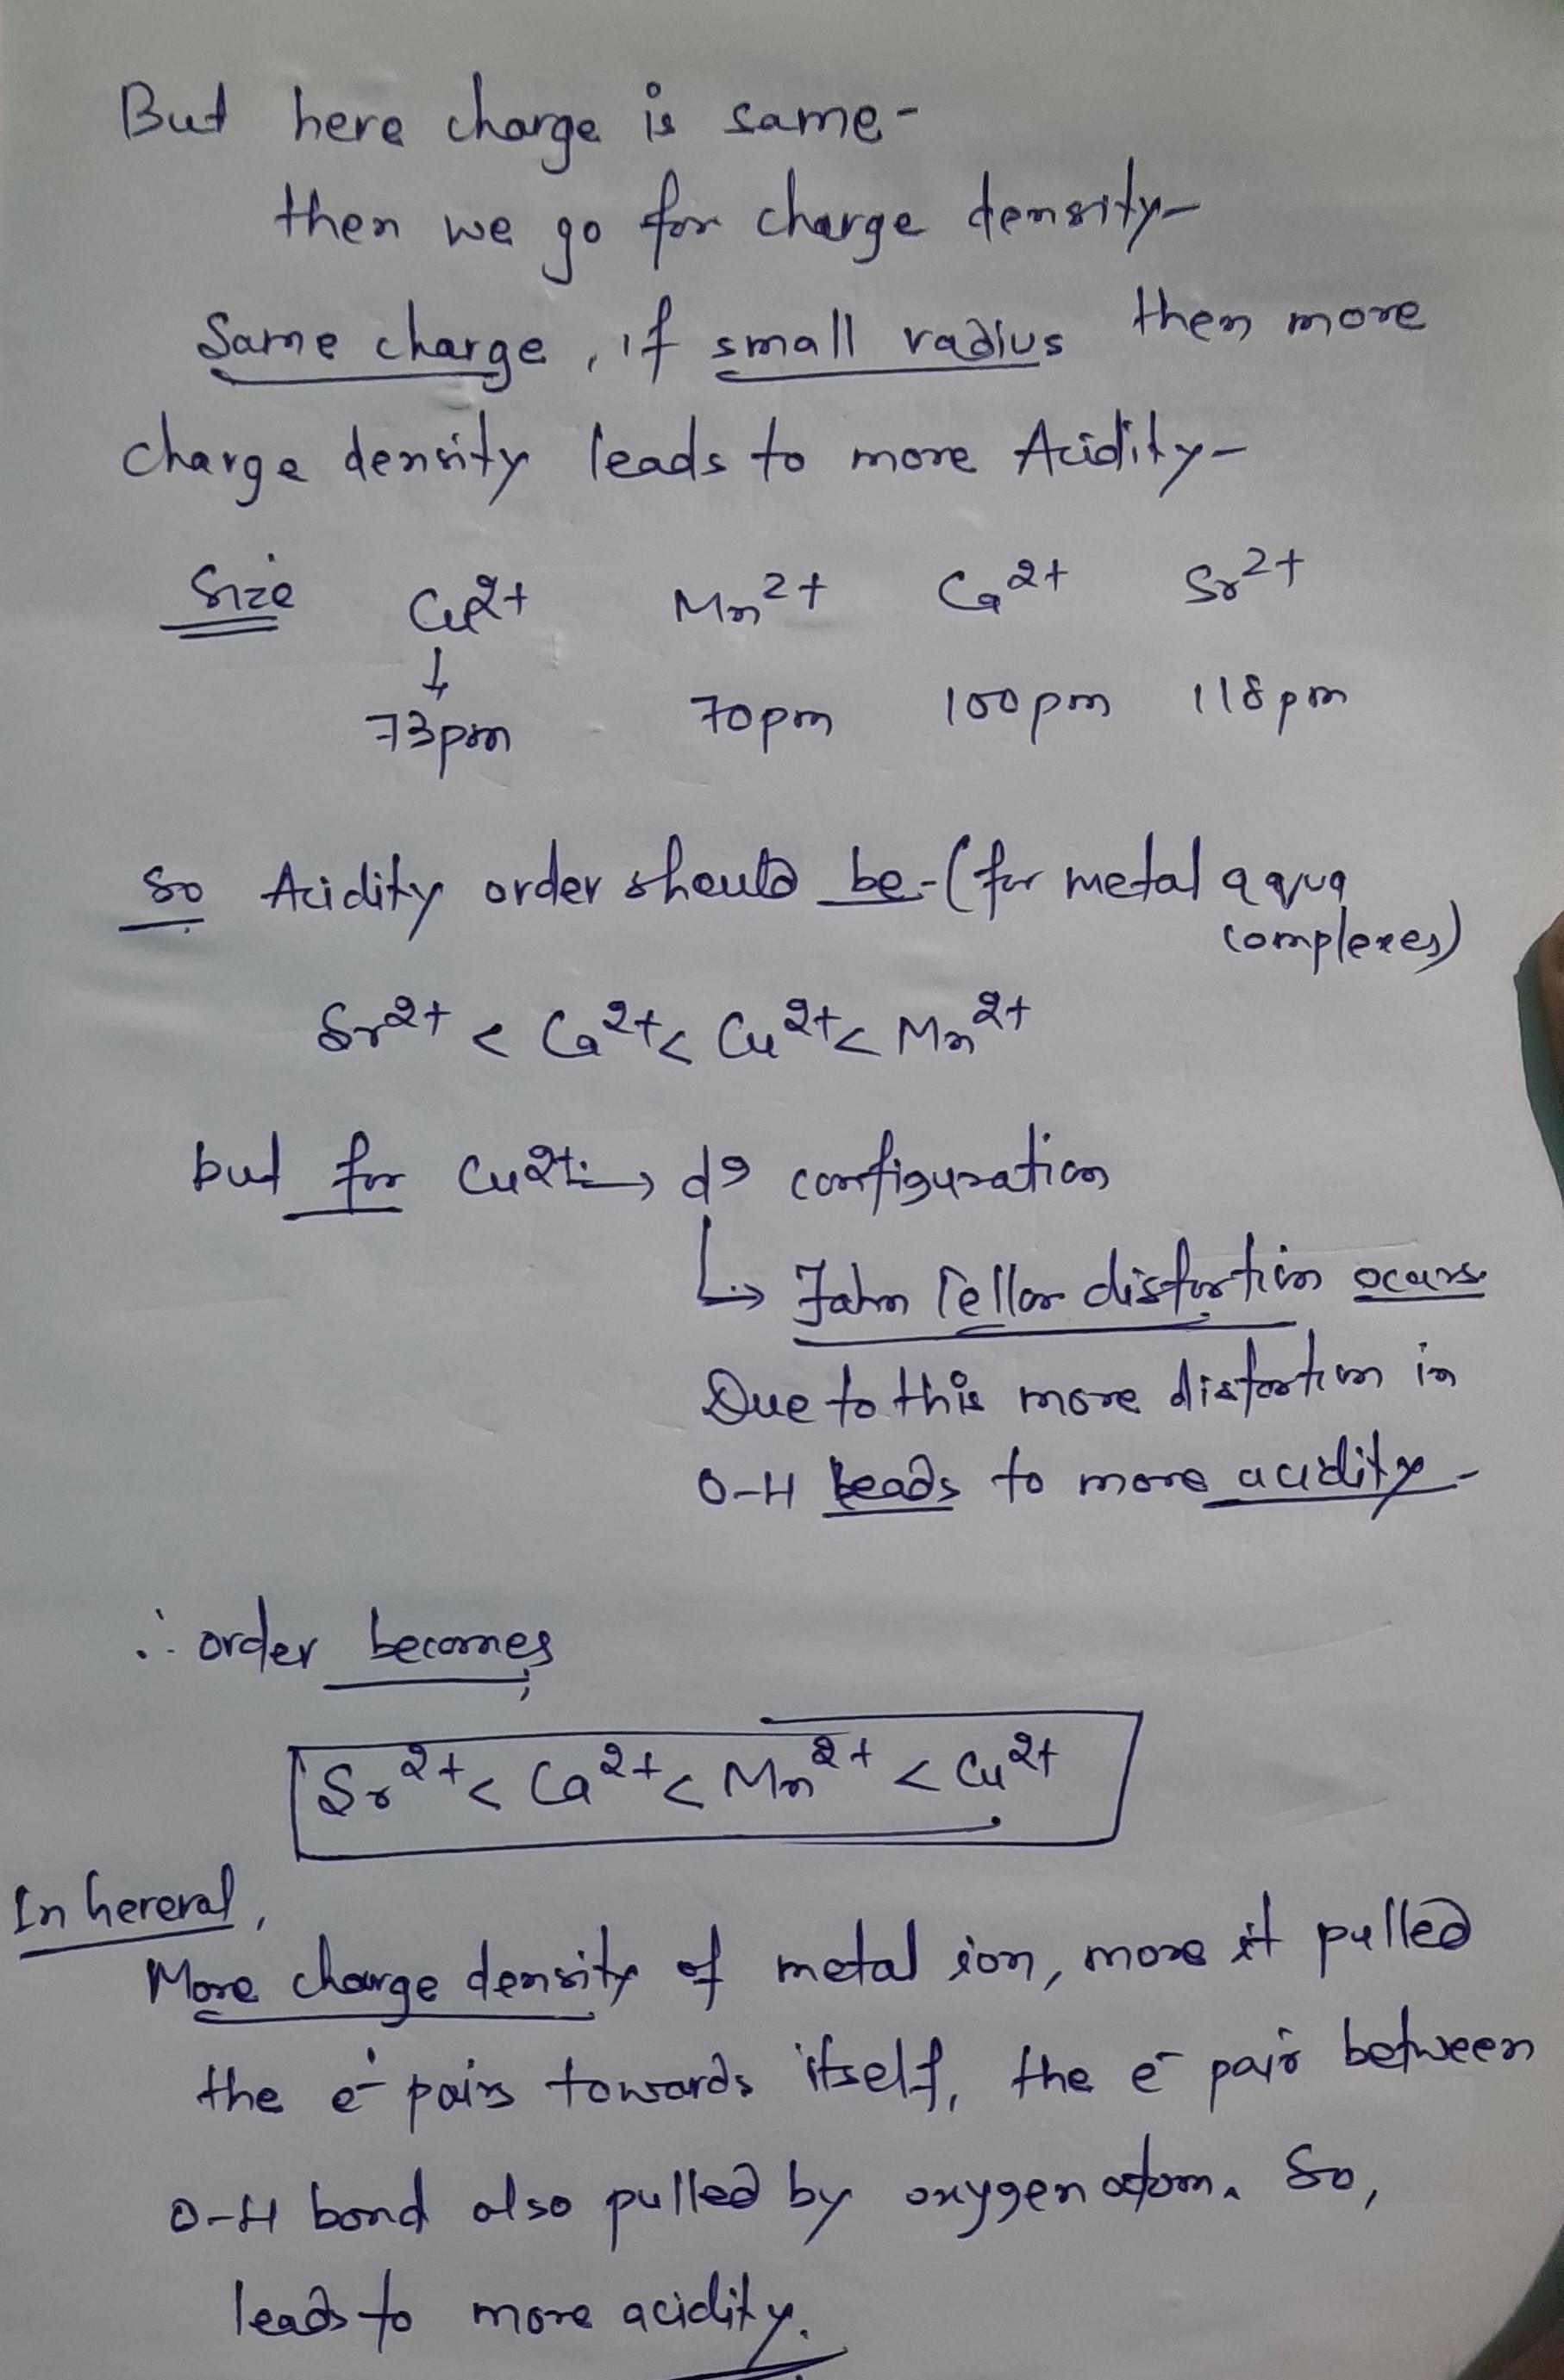 But here charge is same-
then we go for charge density-
Same charge, if small radius then more
charge density leads to more Acidity-
Size Cu2+ Mn2+ Ca2+ Sr2+
↓
73pm 70pm 100pm 118pm
So Acidity order should be-(for metal aqua
complexes)
Sr2+ < Ca2+ < Cu2+ < Mn2+
but for Cu2+:→ d9 configuration
↳ Jahn Tellor distortion ocurs.
Due to this more distortion in
O-H leads to more acidity-
∴ order becomes,
Sr2+ < Ca2+ < Mn2+ < Cu2+
In hereral,
More charge density of metal ion, more it pulled
the e- pairs towards itself, the e- pair between
O-H bond also pulled by oxygen atom. So,
leads to more acidity.